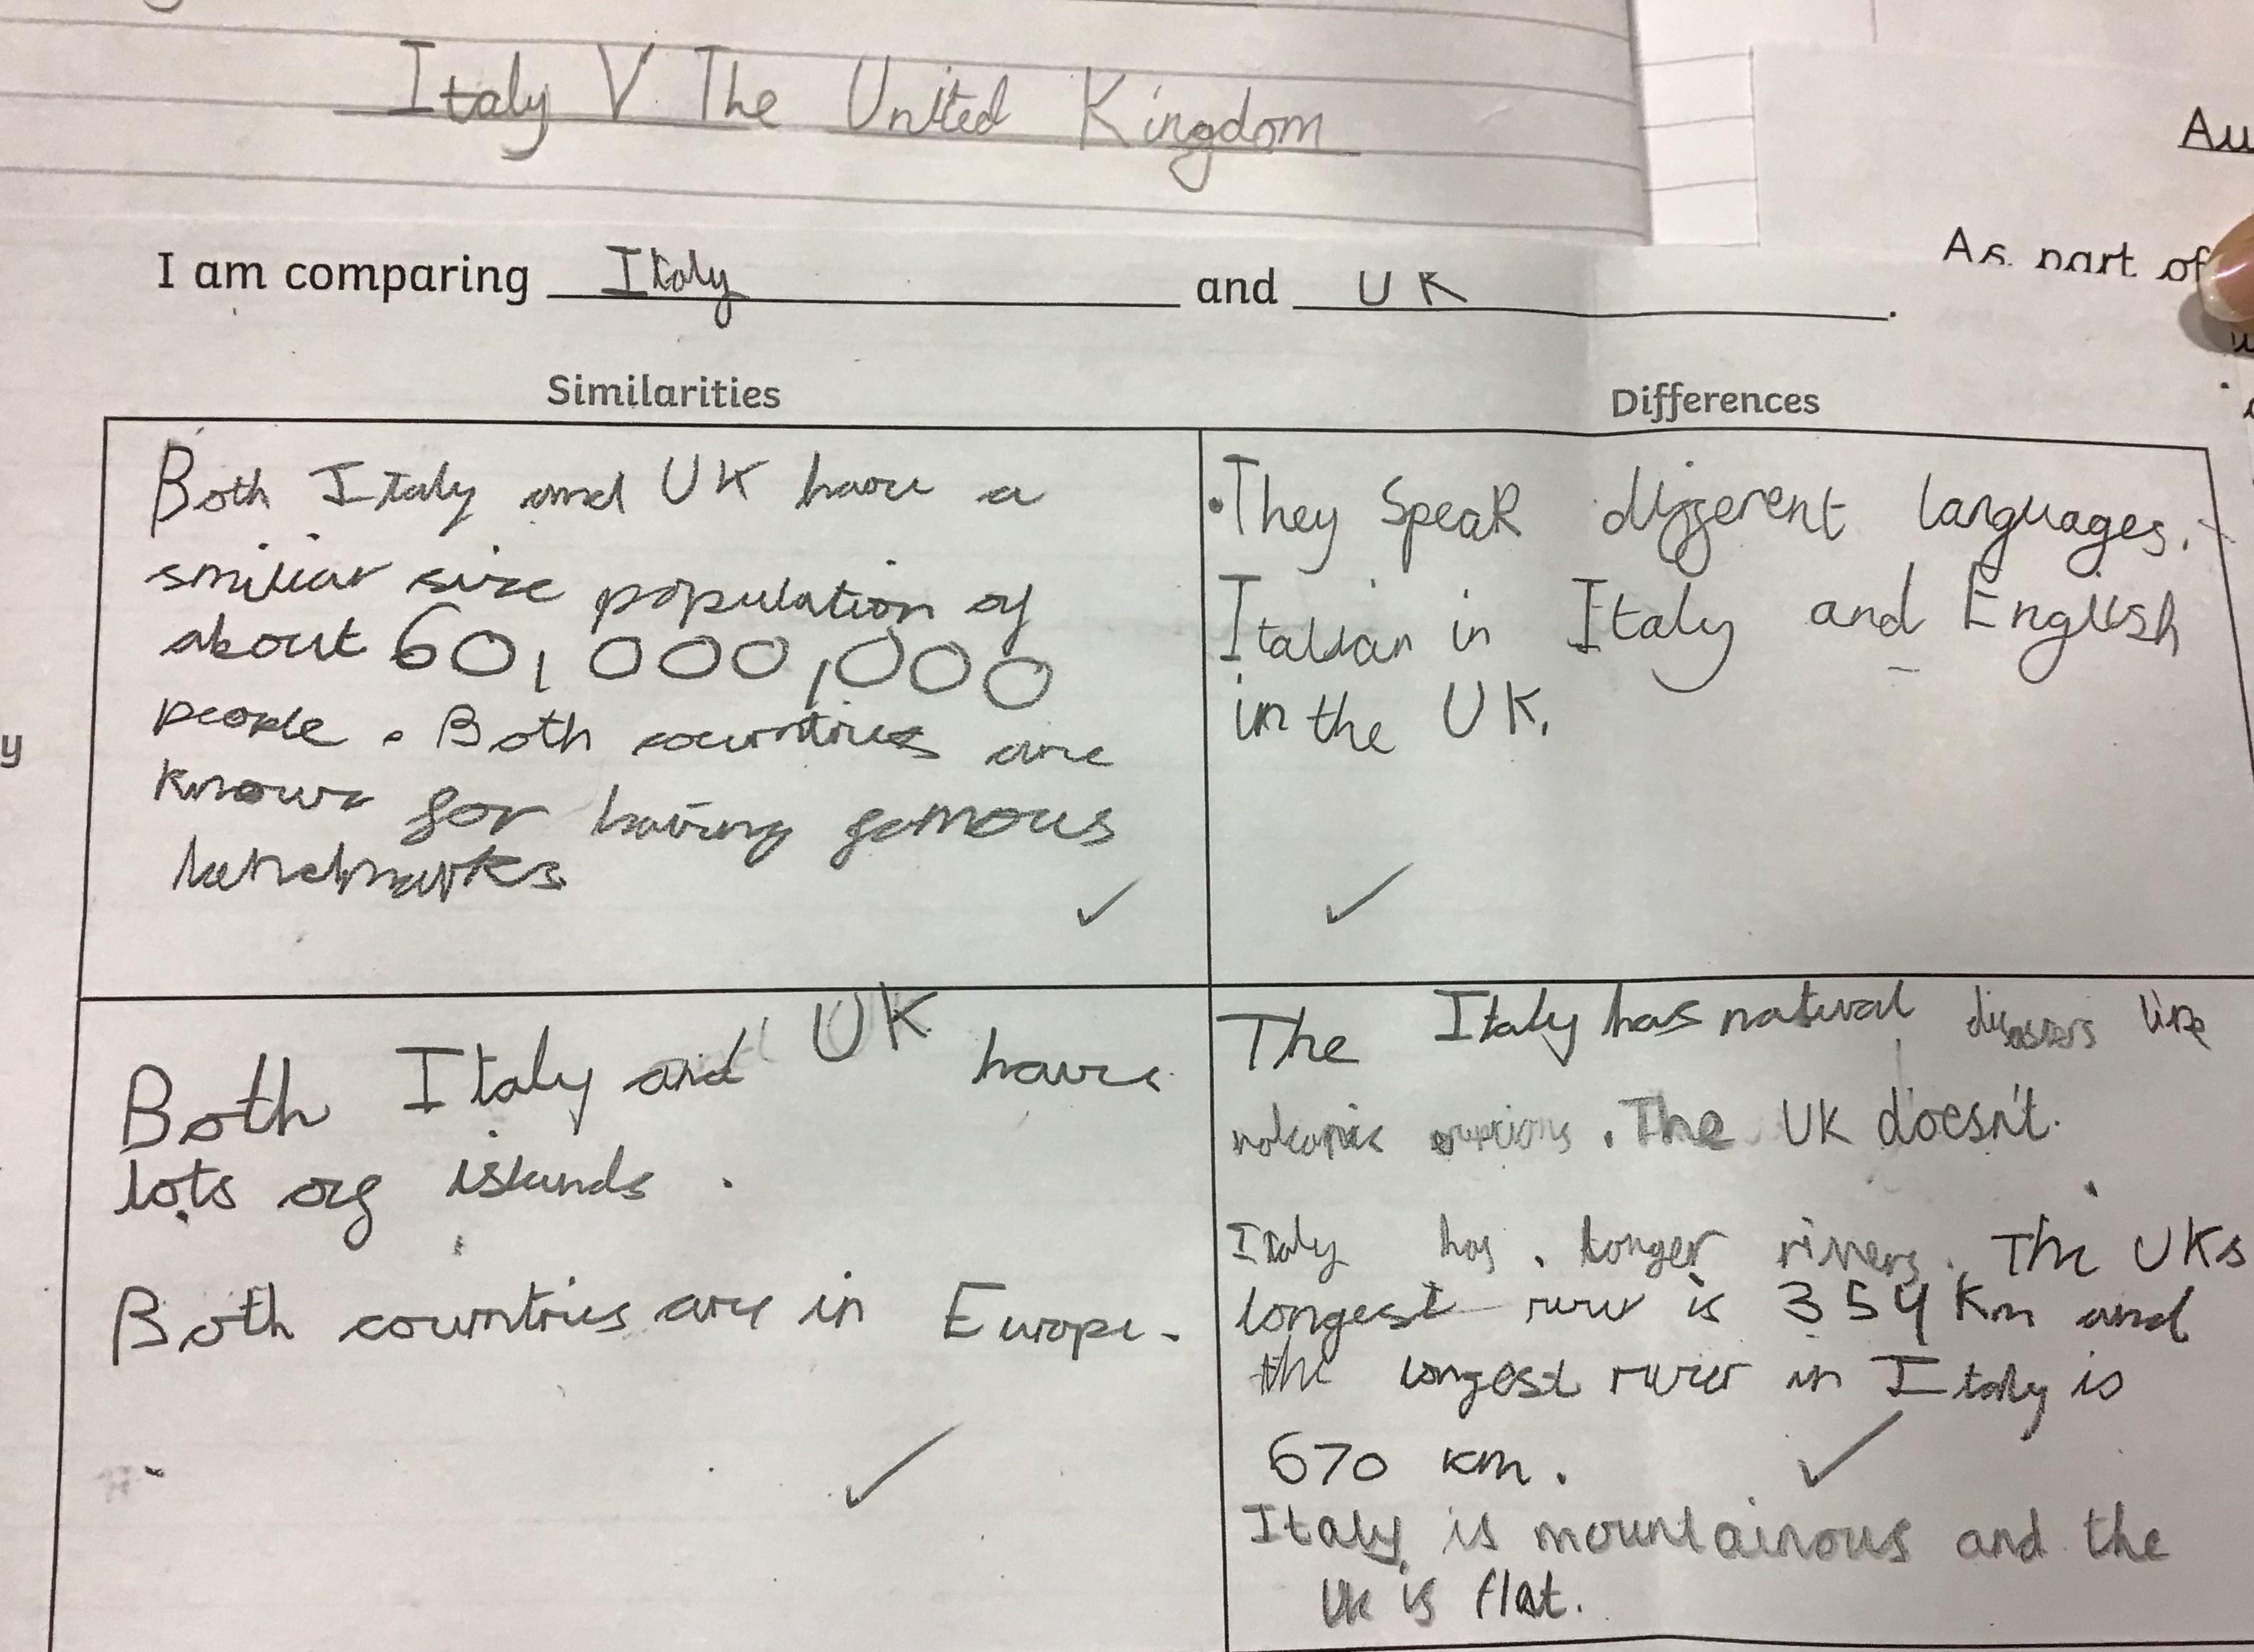 Italy V The United Kingdom
Au
As part of
I am comparing Italy and UK.
Similarities
Differences
Both Italy and UK have a
smiliar size population of
about 60,000,000
people. Both countries are
known for having famous
landmarks
• They speak different languages.
Italian in Italy and English
in the UK.
y
Both Italy and UK have
lots of islands.
Both countries are in Europe.
The Italy has natural disasters like
volcanic eruptions. The UK doesn't.
Italy has longer rivers. The UKs
longest river is 354 km and
the longest river in Italy is
670 km.
Italy is mountainous and the
Uk is flat.